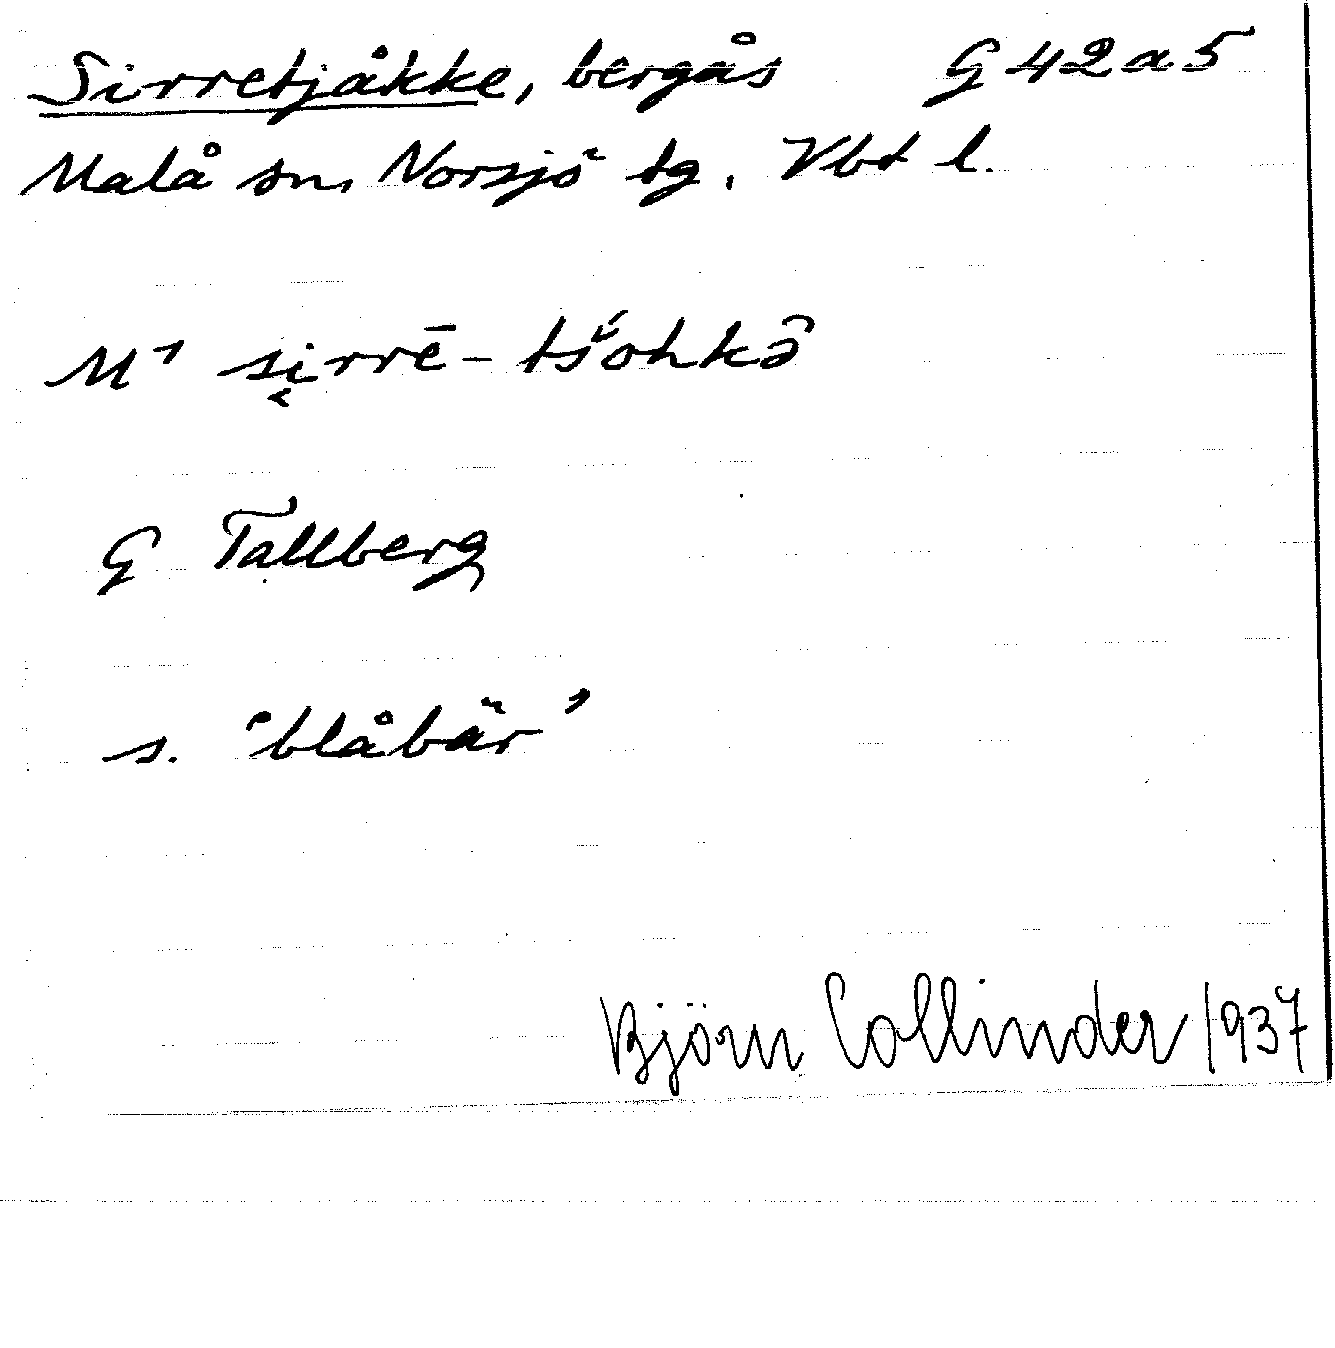 Sirretjåkke, bergås G 42 a 5
Malå sn, Norsjö tg. Vbt l.
M¹ si̬rrē - tš́ohkə̑
G Tallberg
s. 'blåbär'
Björn Collinder 1937